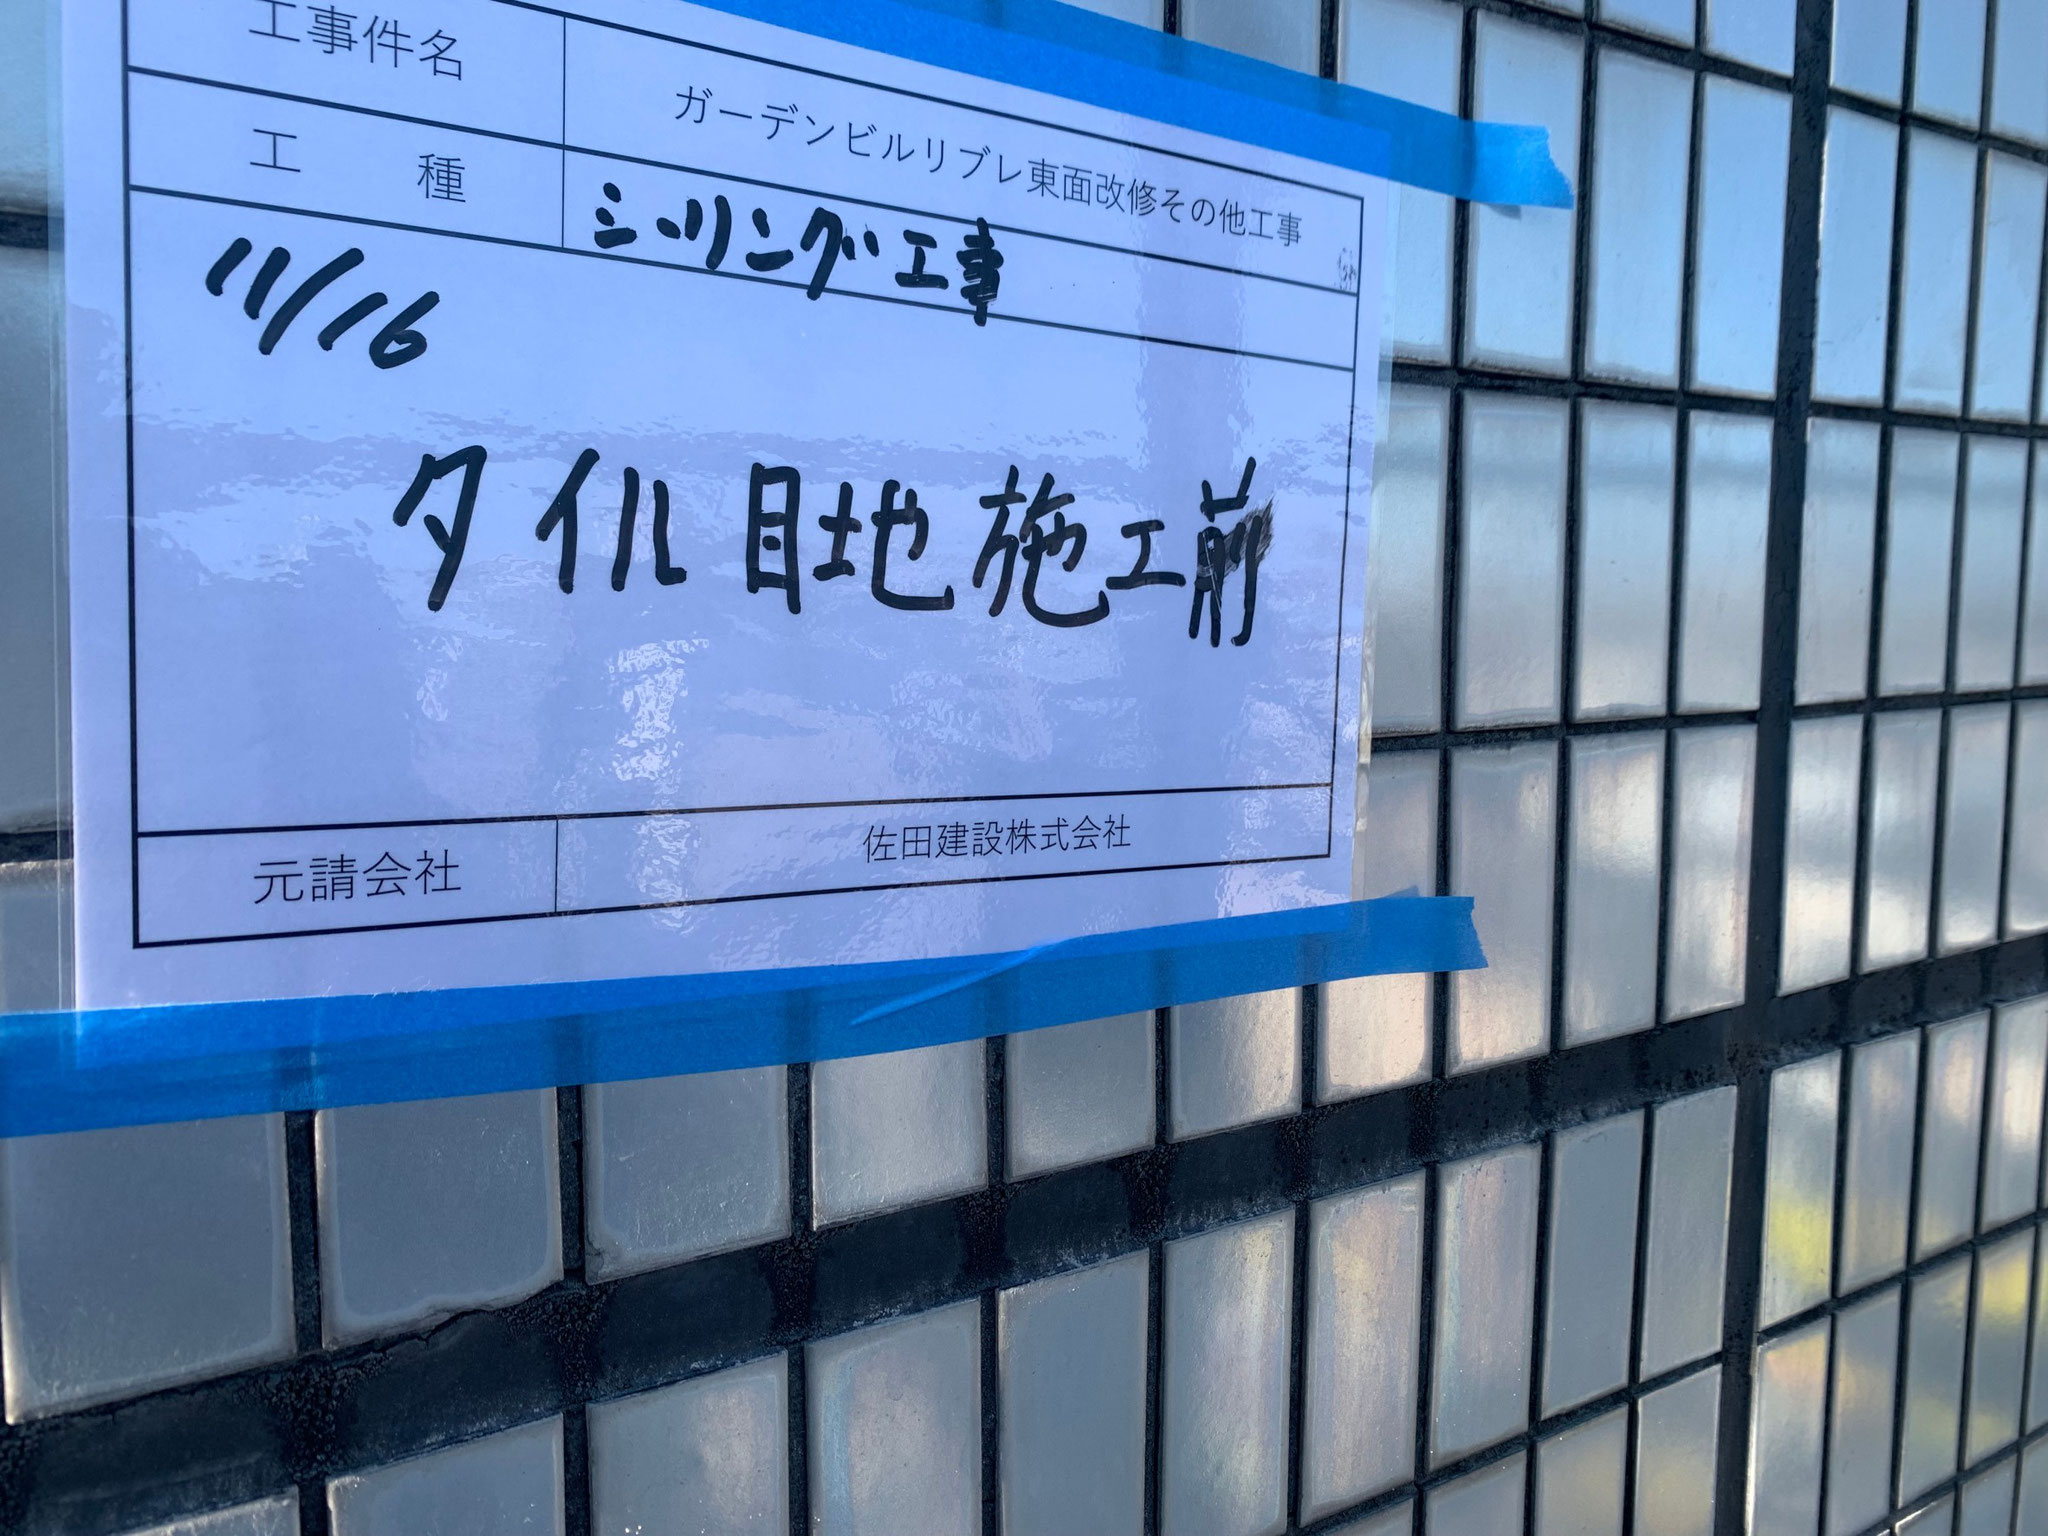 工事件名 ガーデンビルリブレ東面改修その他工事
工 種 シーリング工事
11/16
タイル目地施工前
元請会社 佐田建設株式会社